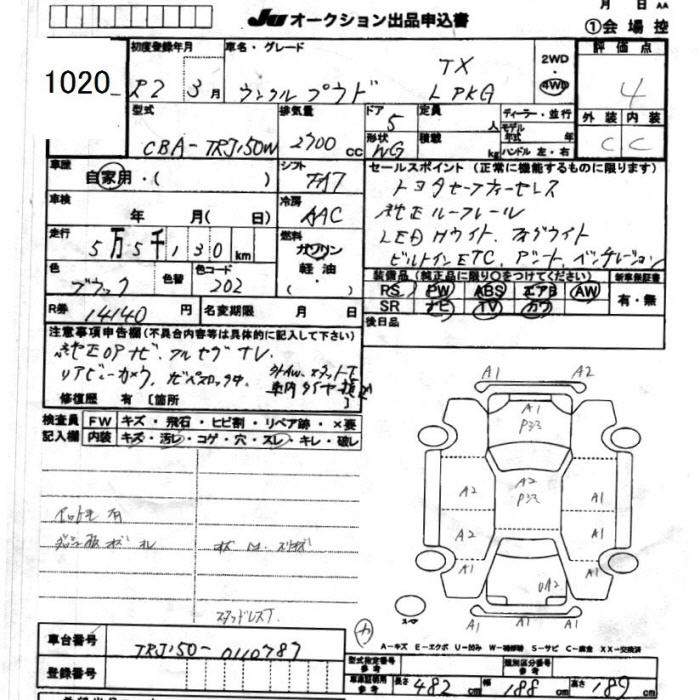 月 日 AA
JU オークション出品申込書
①会場控
1020
初度登録年月
R2 3月
車名・グレード
ランクル プラド
TX
L PKG
2WD
4WD
評価点
4
型式
CBA-TRJ150W
排気量
2700 cc
ドア
5
形状
WG
定員
人
積載
kg
ディーラー・並行
モデル年式 年
ハンドル 左・右
外装
内装
C
C
車歴
自家用・( )
シフト
FAT
セールスポイント (正常に機能するものに限ります)
トヨタセーフティーセンス
純正ルーフレール
LEDヘッドライト、フォグライト
ビルトインETC、
車検
年 月( 日)
冷房
AAC
走行
5万5千130km
燃料
ガソリン
軽油
( )
色
ブラック
色替
色コード
202
装備品(純正品に限り○をつけてください)
PS PW ABS エアB AW
SR ナビ TV カワ
新車保証書
有・無
R券
14140円
名変期限 月 日
後日品
注意事項申告欄(不具合内容等は具体的に記入して下さい)
純正OPナビ、フルセグTV、
リアビューカメラ、
修復歴 有 [箇所 ]
検査員
記入欄
FW キズ・飛石・ヒビ割・リペア跡・×要
内装 キズ・汚レ・コゲ・穴・スレ・キレ・破レ
スタッドレスT
A1 A2
A1
P33
A2
P33
A2
A1
A2
A1
A1
A1
UA2
A1
A1
スペア
A-キズ E-エクボ U-凹み W-補修跡 S-サビ C-腐食 XX-交換済
車台番号
TRJ150-0110787
登録番号
型式指定番号
参考
類別区分番号
参考
車庫証明用
参考
長さ 482cm
幅 188cm
高さ 189cm